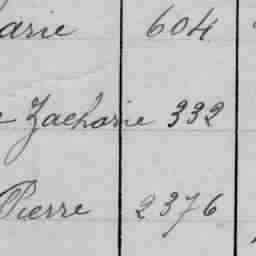 arie 604
e Zacharie 332
Pierre 2376